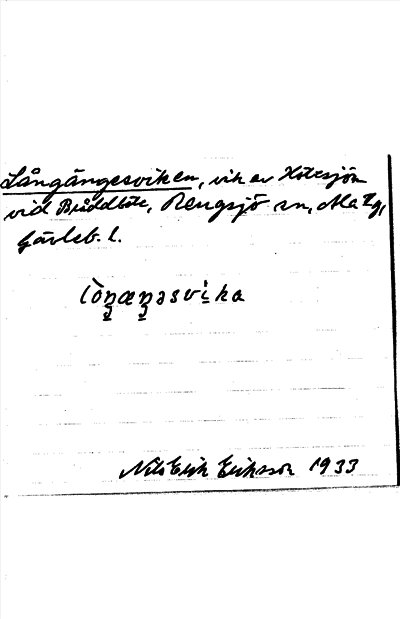 Långängesviken, vik av Hötesjön
vid Bräddböle, Rengsjö sn, Ala tg,
Gävleb. l.
lòŋæŋəsvika
Nils Erik Eriksson 1933